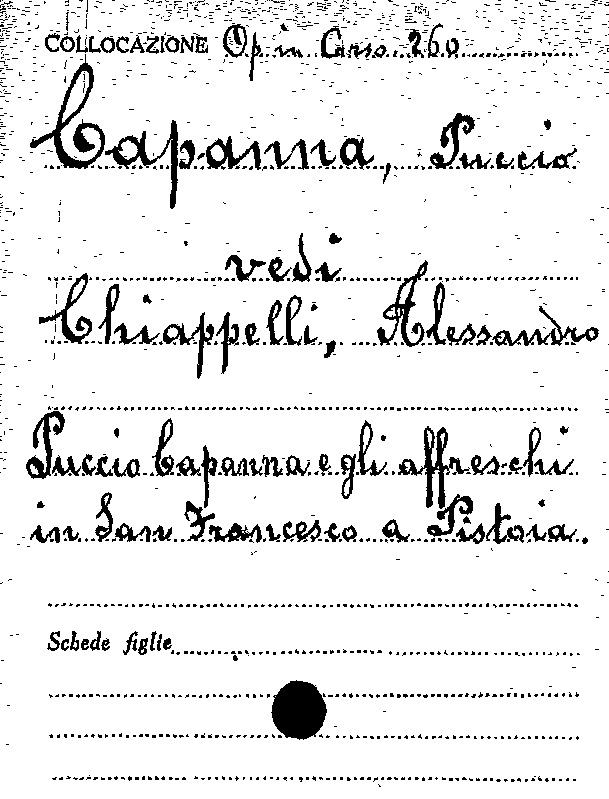 COLLOCAZIONE Op. in Corso. 260
Capanna, Puccio
vedi
Chiappelli, Alessandro
Puccio Capanna e gli affreschi
in San Francesco a Pistoia.
Schede figlie